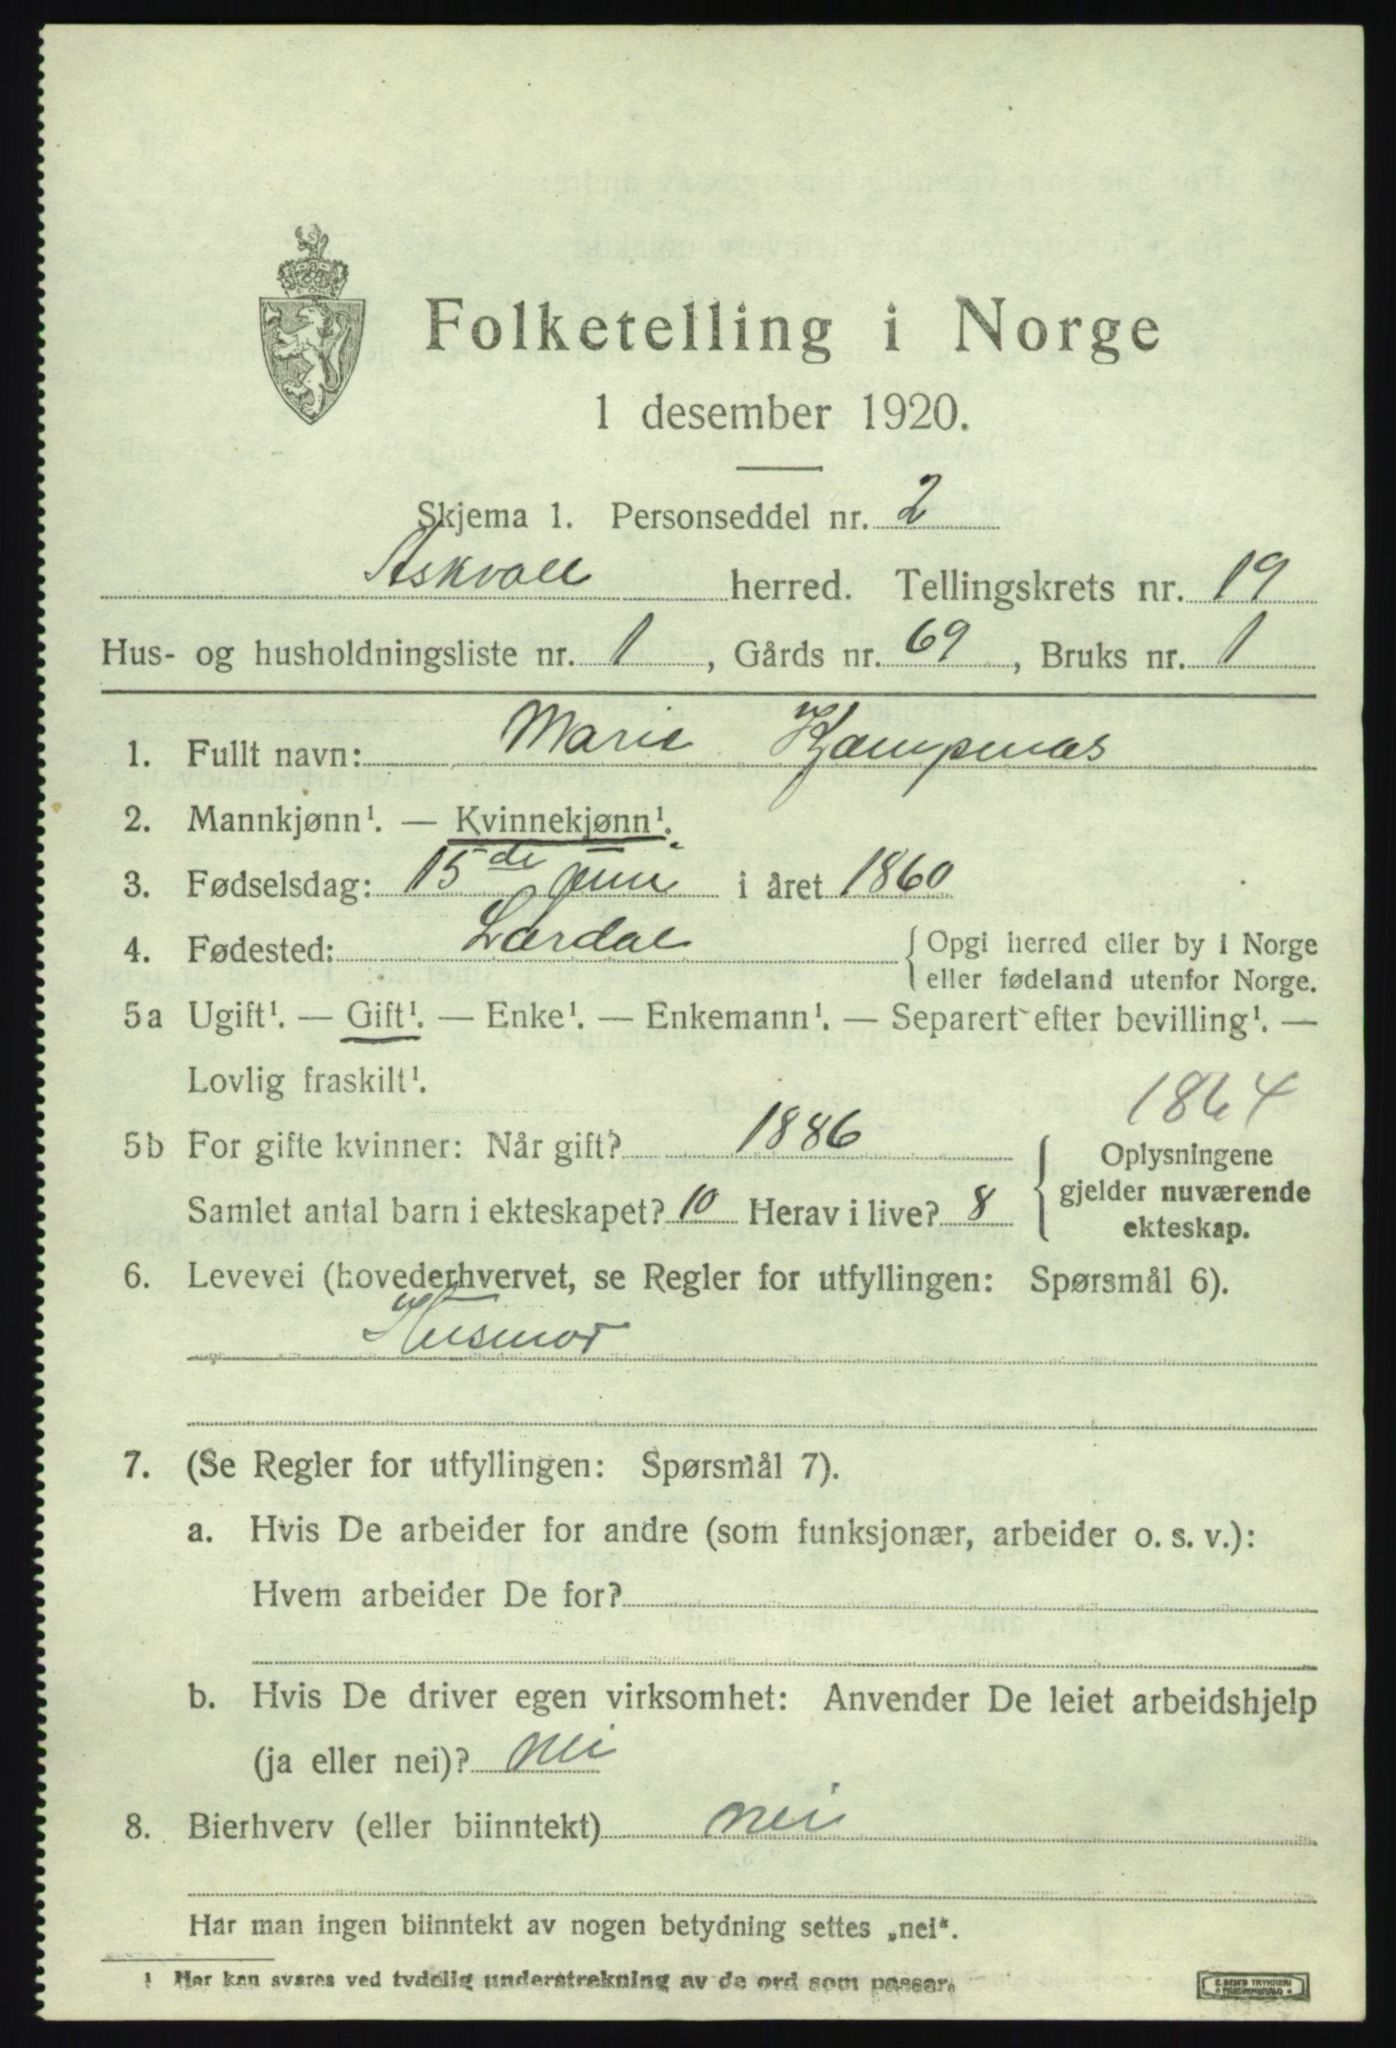 Folketelling i Norge
1 desember 1920.
Skjema 1. Personseddel nr. 2
Askvoll herred. Tellingskrets nr. 19
Hus- og husholdningsliste nr. 1, Gårds nr. 69, Bruks nr. 1
1. Fullt navn: Marie Kampenæs
2. Mannkjønn¹. — Kvinnekjønn¹.
3. Fødselsdag: 15de juni i året 1860
4. Fødested: Lærdal { Opgi herred eller by i Norge
eller fødeland utenfor Norge.
5a Ugift¹. — Gift¹. — Enke¹. — Enkemann¹. — Separert efter bevilling¹. —
Lovlig fraskilt¹.
1864
5b For gifte kvinner: Når gift? 1886
Samlet antal barn i ekteskapet? 10 Herav i live? 8
Oplysningene
gjelder nuværende
ekteskap.
6. Levevei (hovederhvervet, se Regler for utfyllingen: Spørsmål 6).
Husmor
7. (Se Regler for utfyllingen: Spørsmål 7).
a. Hvis De arbeider for andre (som funksjonær, arbeider o. s. v.):
Hvem arbeider De for?
b. Hvis De driver egen virksomhet: Anvender De leiet arbeidshjelp
(ja eller nei)? nei
8. Bierhverv (eller biinntekt) nei
Har man ingen biinntekt av nogen betydning settes „nei".
¹ Her kan svares ved tydelig understrekning av de ord som passer.